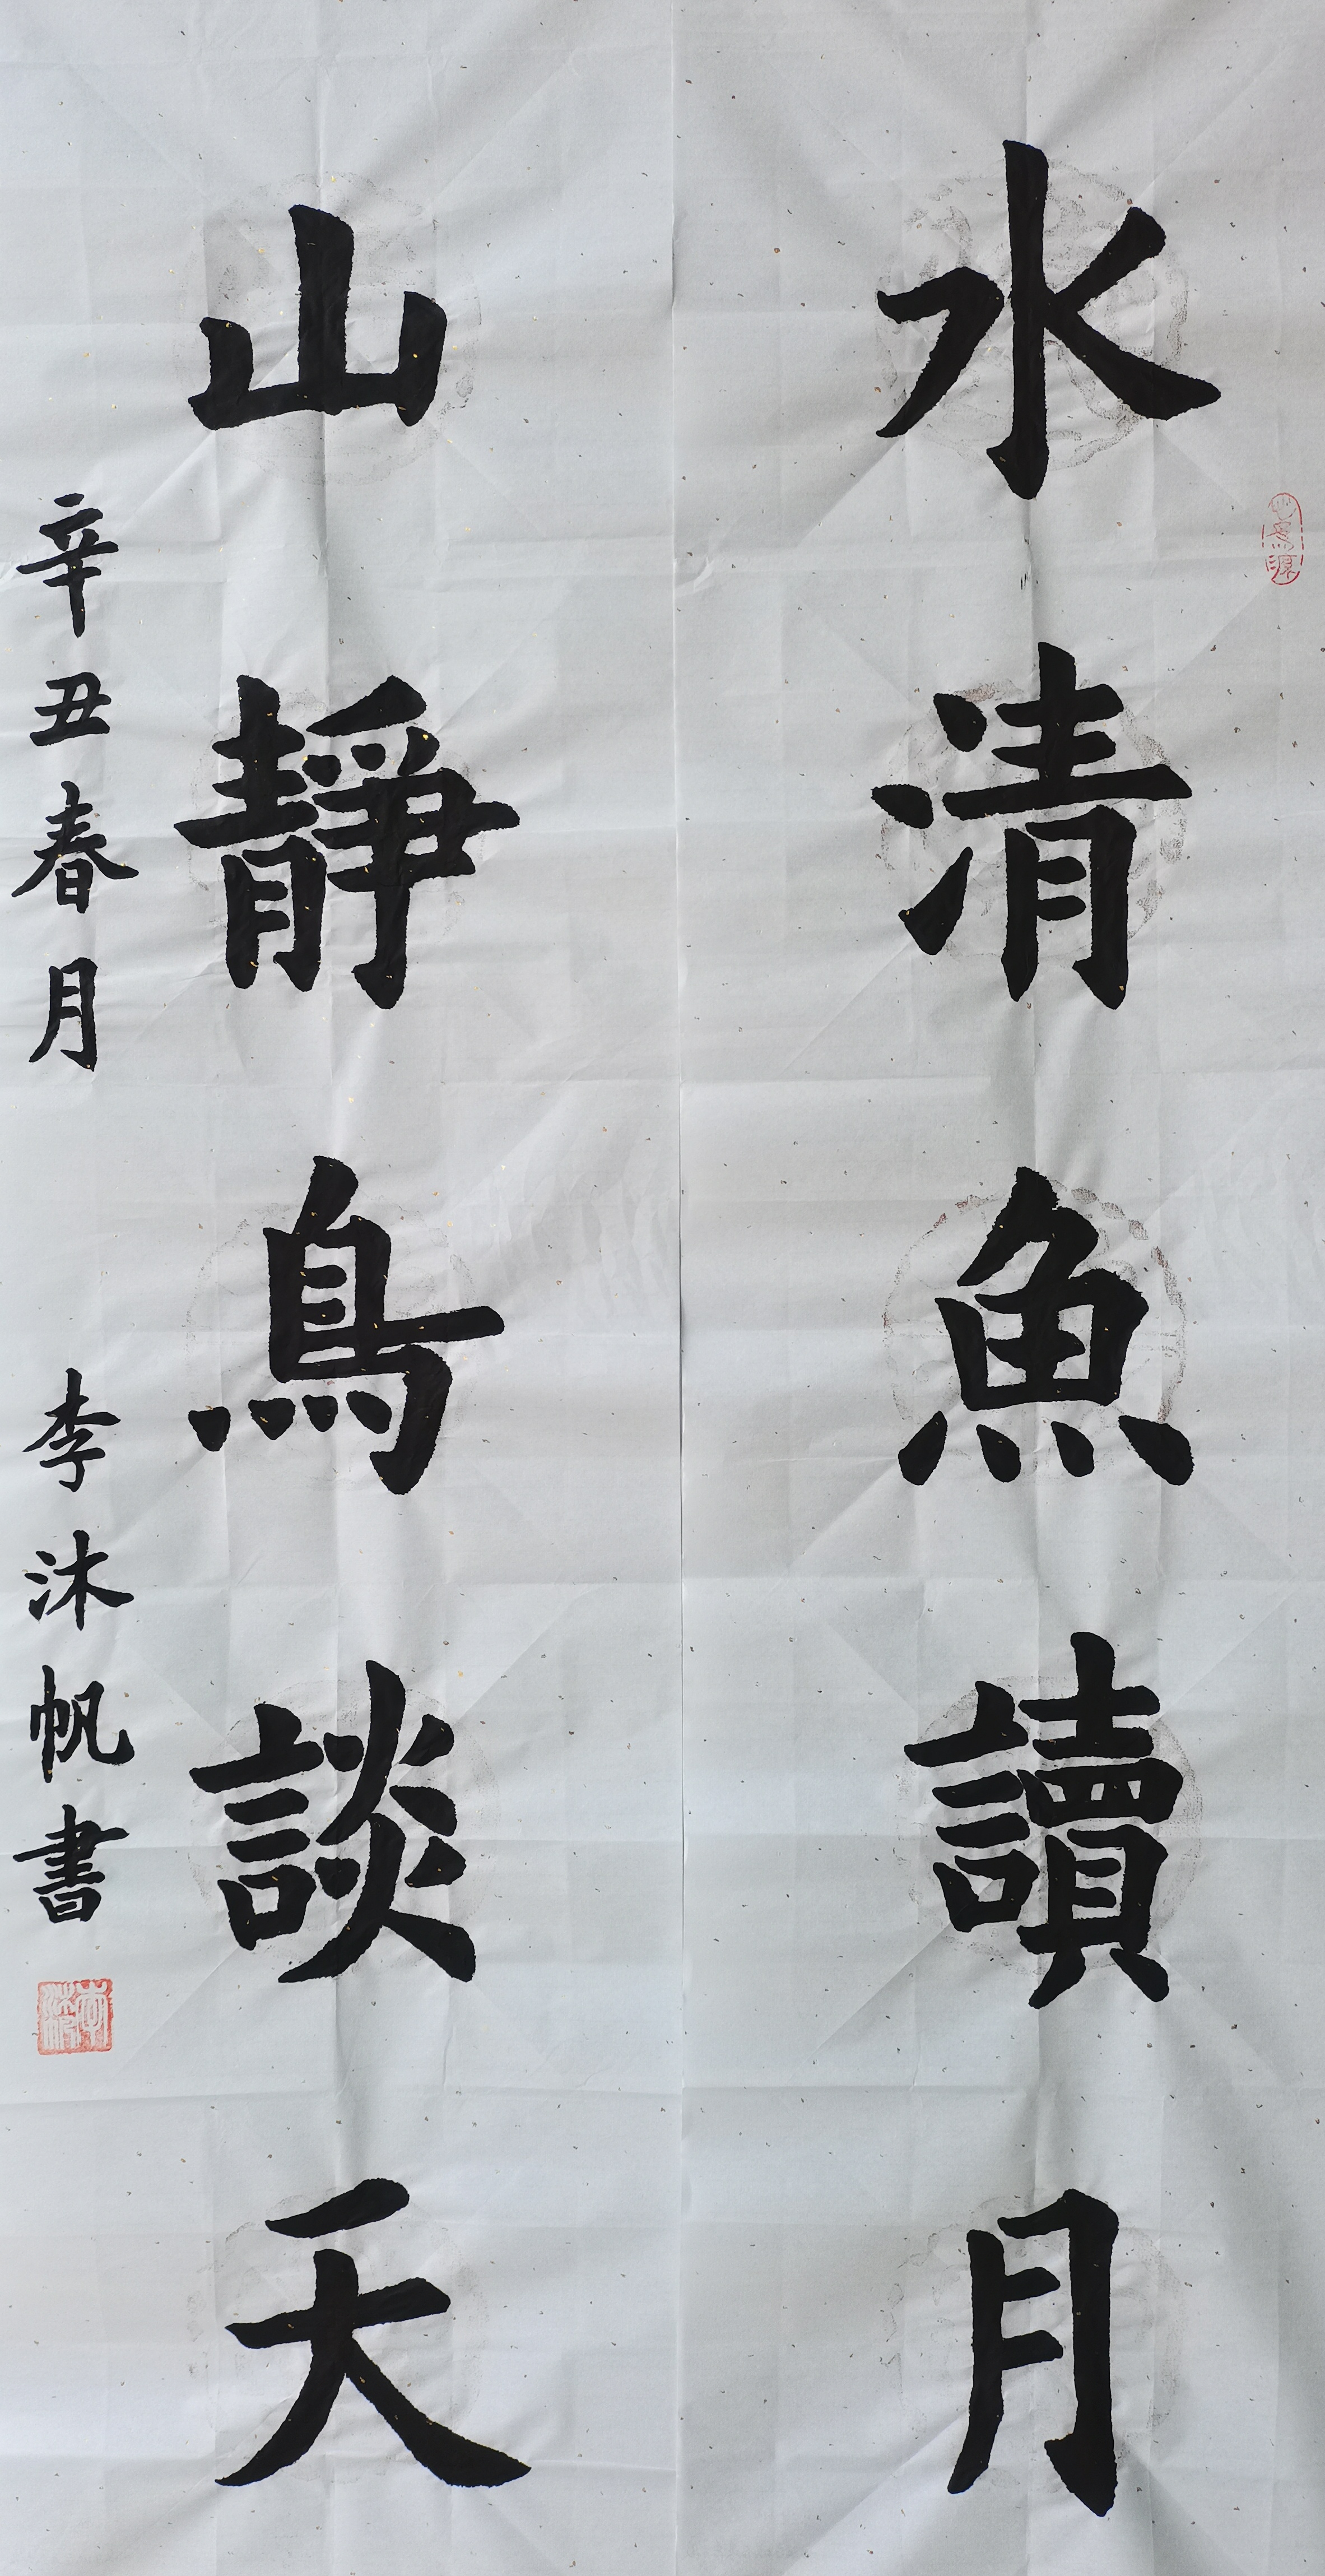 水清魚讀月
山靜鳥談天
辛丑春月
李沐帆書